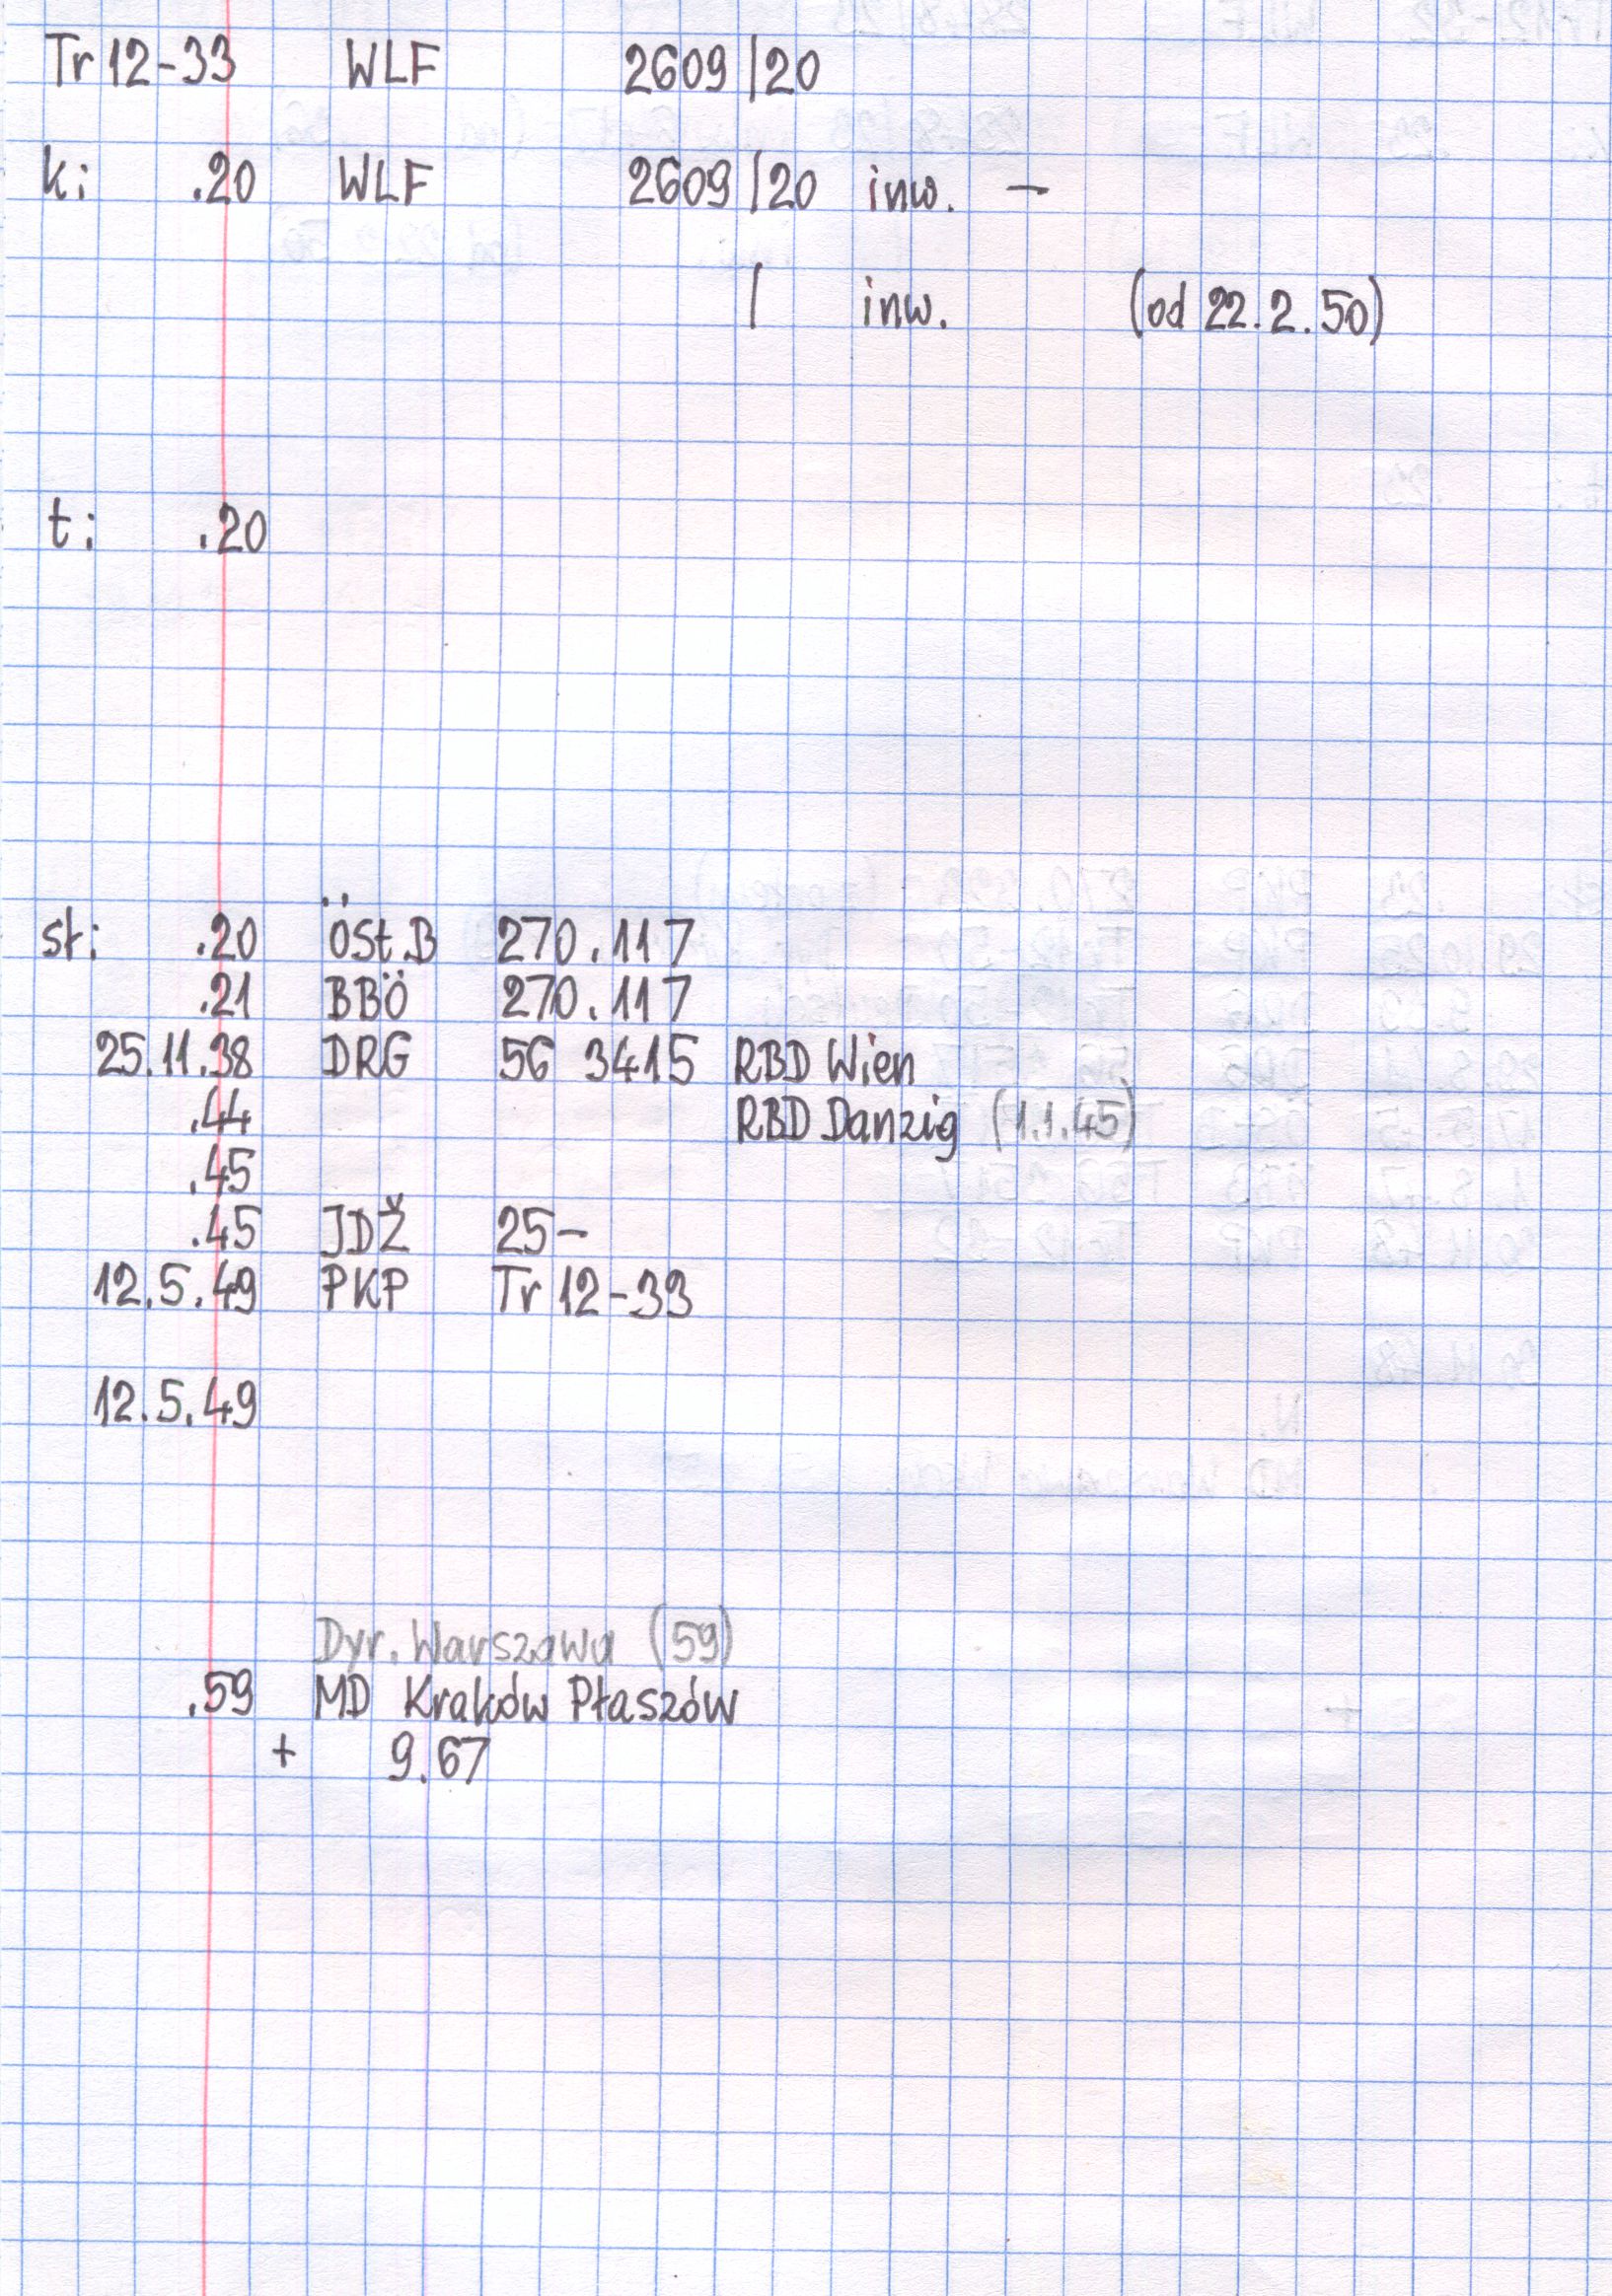 Tr 12-33 WLF 2609/20
k: .20 WLF 2609/20 inw. –
/ inw. (od 22.2.50)
t: .20
st: .20 ÖSt.B 270.117
.21 BBÖ 270.117
25.11.38 DRG 56 3415 RBD Wien
.44 RBD Danzig (1.1.45)
.45
.45 JDŽ 25–
12.5.49 PKP Tr 12-33
12.5.49
Dyr. Warszawa (59)
.59 MD Kraków Płaszów
+ 9.67